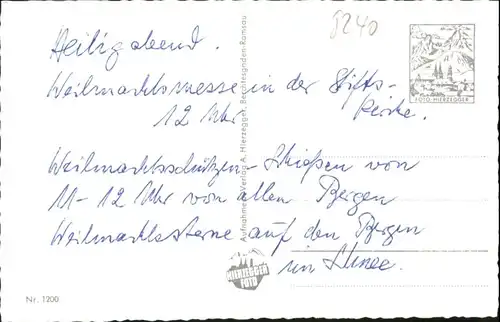 8240
Heiligabend.
Weihnachtsmesse in der Stifts-
kirche.
12 Uhr
Weihnachtsschützen-Schießen von
11-12 Uhr von allen Bergen
Weihnachtssterne auf den Bergen
im Schnee.
FOTO HIERZEGGER
Aufnahme u. Verlag A. Hierzegger, Berchtesgaden-Ramsau
HIERZEGGER
FOTO
Nr. 1200